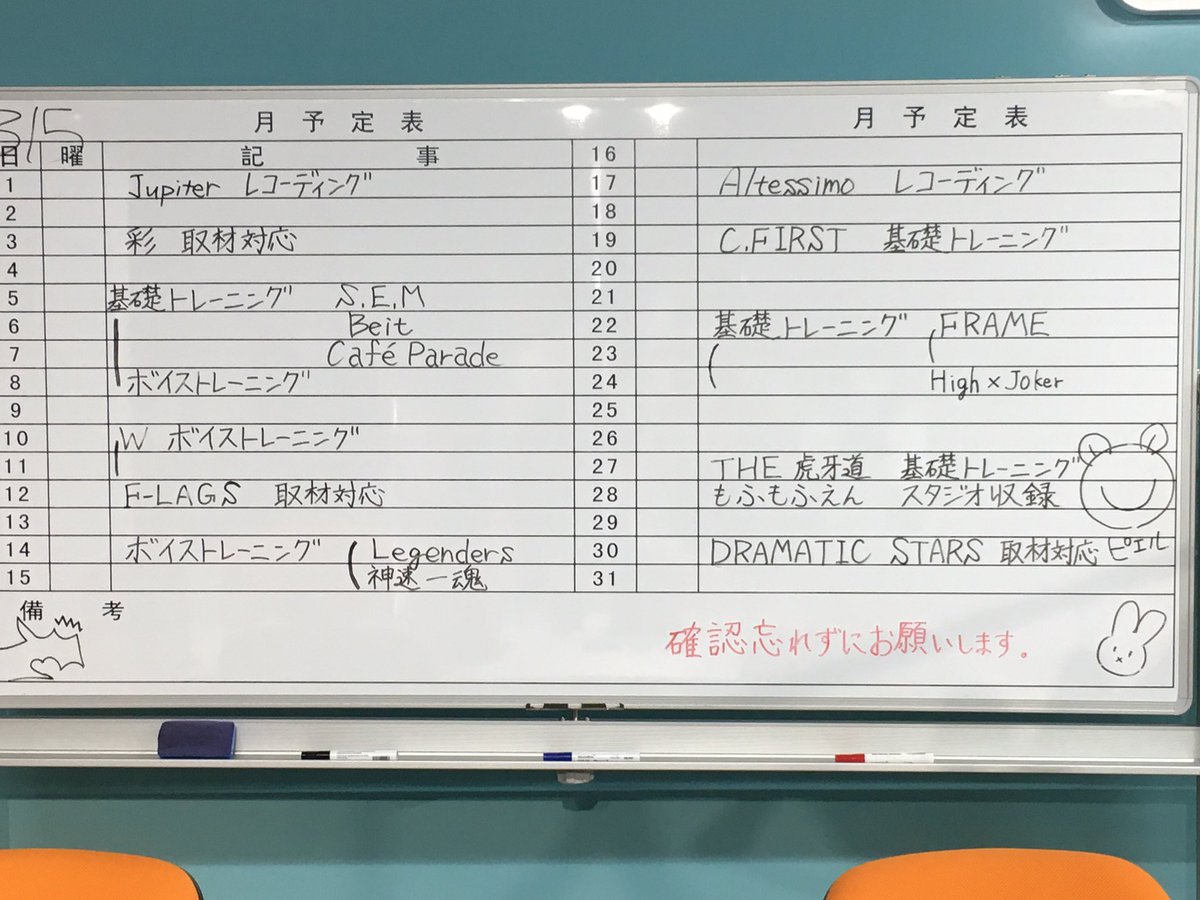 315
月予定表
日 曜 記事
1 Jupiter レコーディング
2
3 彩 取材対応
4
5 基礎トレーニング S.E.M
6 Beit
7 Café Parade
8 ボイストレーニング
9
10 W ボイストレーニング
11
12 F-LAGS 取材対応
13
14 ボイストレーニング Legenders
15 神速一魂
備考
月予定表
16
17 Altessimo レコーディング
18
19 C.FIRST 基礎トレーニング
20
21
22 基礎トレーニング FRAME
23
24 High×Joker
25
26
27 THE 虎牙道 基礎トレーニング
28 もふもふえん スタジオ収録
29
30 DRAMATIC STARS 取材対応 ピエール
31
確認忘れずにお願いします。